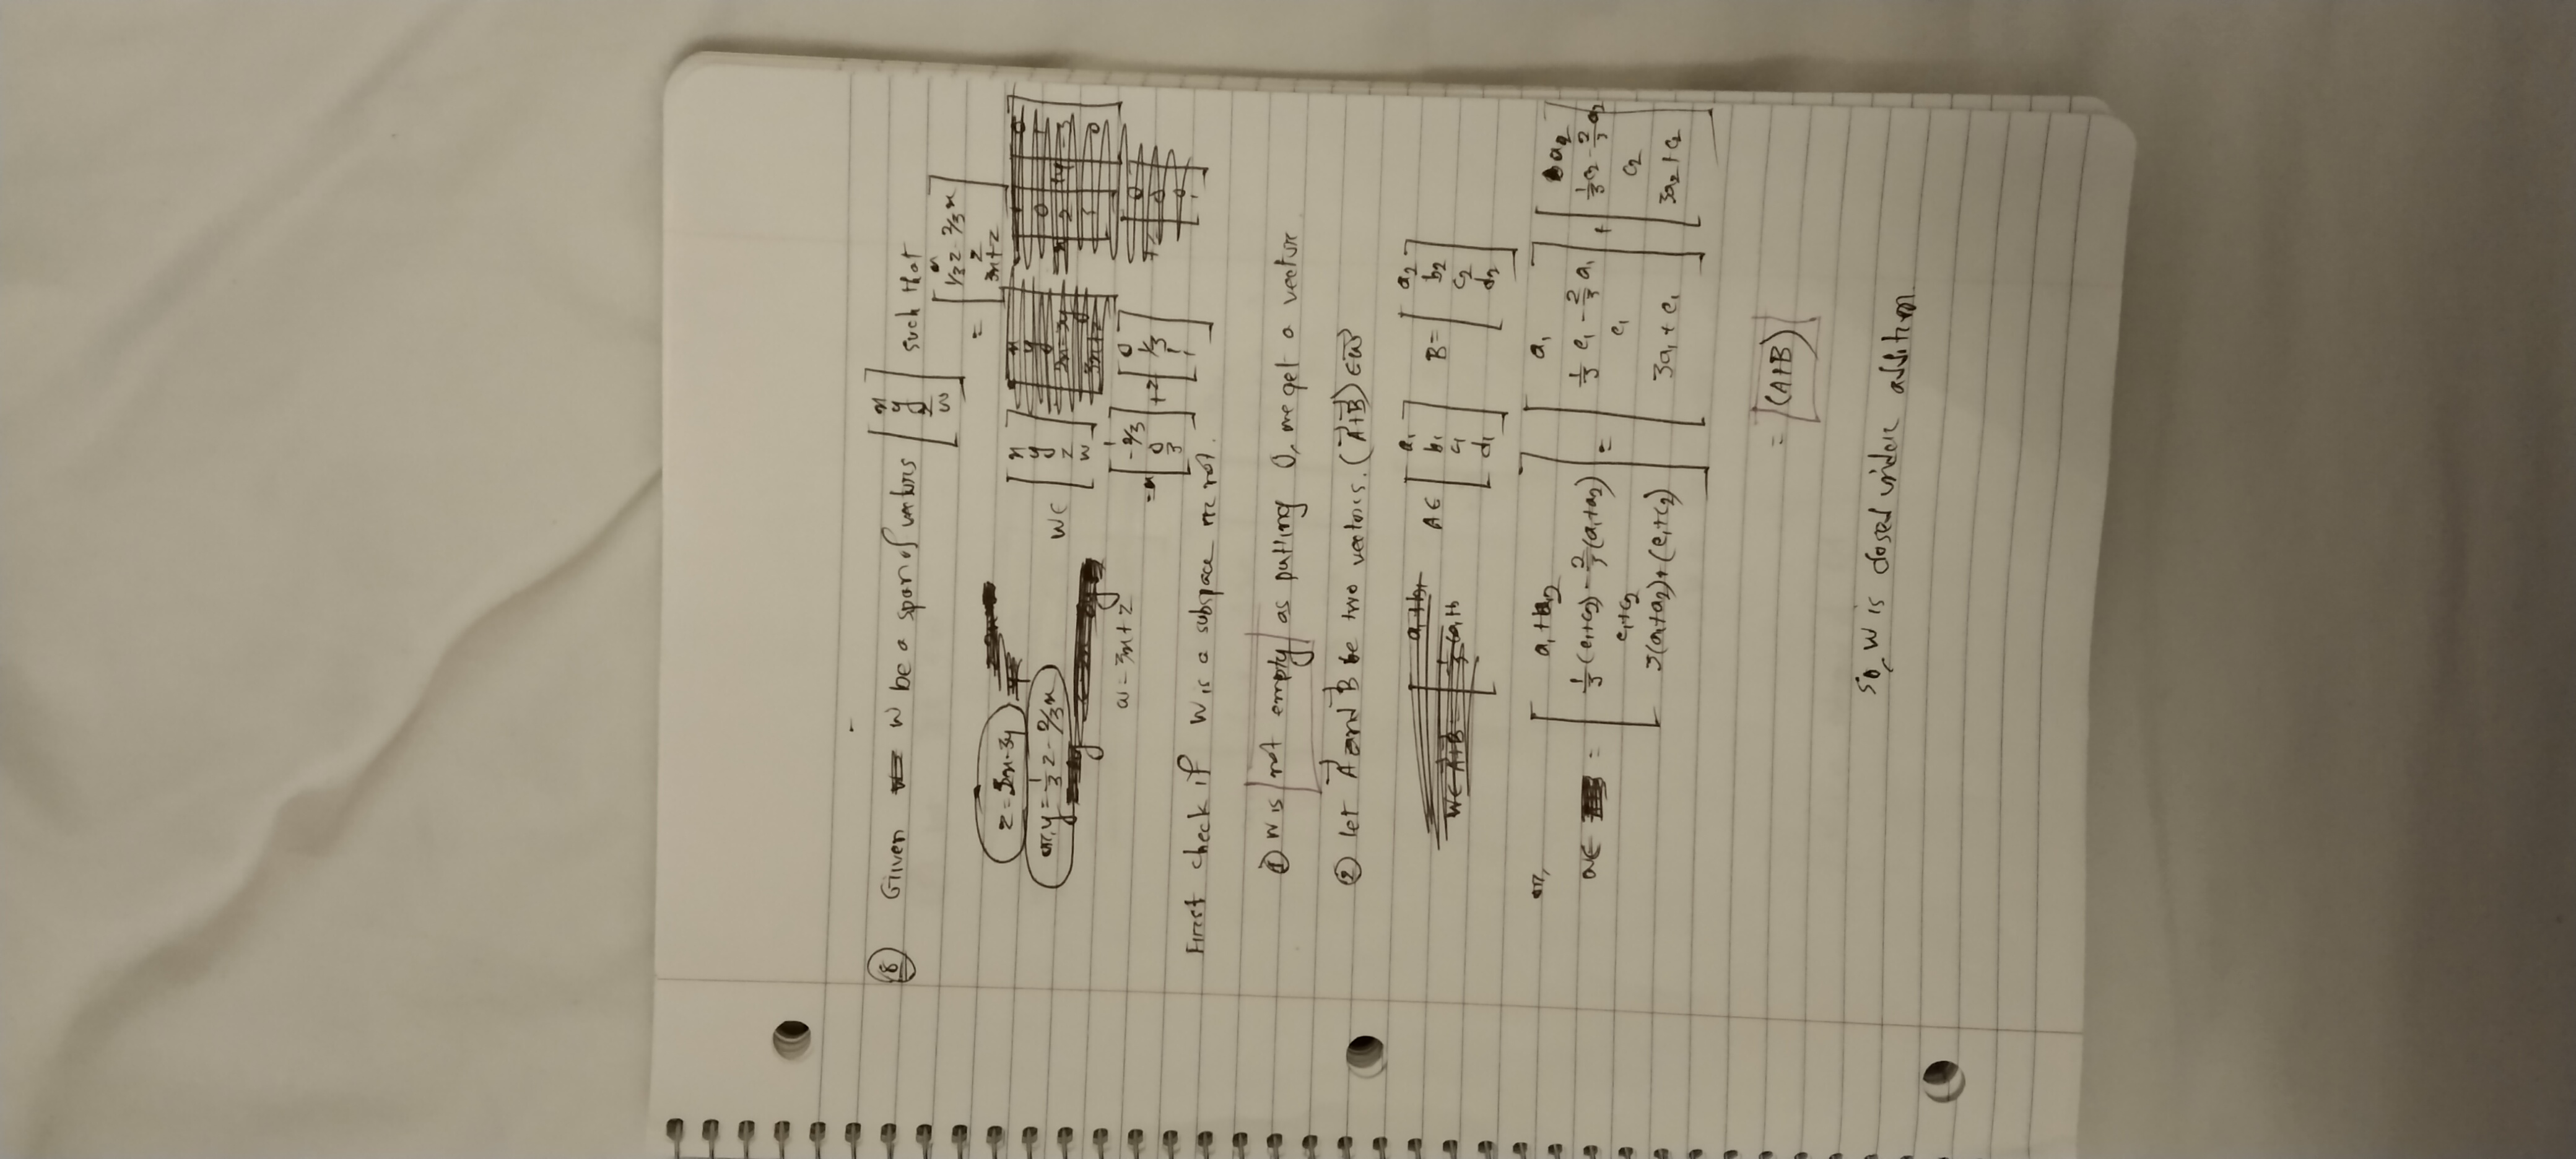 8 Given W be a span of vectors [x y z w] such that
= [x 1/3 z - 2/3 x z 3x+z]
z = 2x-3y
or, y = 1/3 z - 2/3 x
W ∈ [x y z w]
w = 3x+z
= x [1 -2/3 0 3] + z [0 1/3 1 1]
First check if W is a subspace or not.
① W is not empty as putting 0, we get a vector
② let A⃗ and B⃗ be two vectors. (A⃗+B⃗) ∈ W⃗
A ∈ [a₁ b₁ c₁ d₁] B = [a₂ b₂ c₂ d₂]
or,
= [a₁+a₂ 1/3(c₁+c₂) - 2/3(a₁+a₂) c₁+c₂ 3(a₁+a₂)+(c₁+c₂)] = [a₁ 1/3 c₁ - 2/3 a₁ c₁ 3a₁+c₁] + [a₂ 1/3 c₂ - 2/3 a₂ c₂ 3a₂+c₂]
= (A+B)
so, W is closed under addition